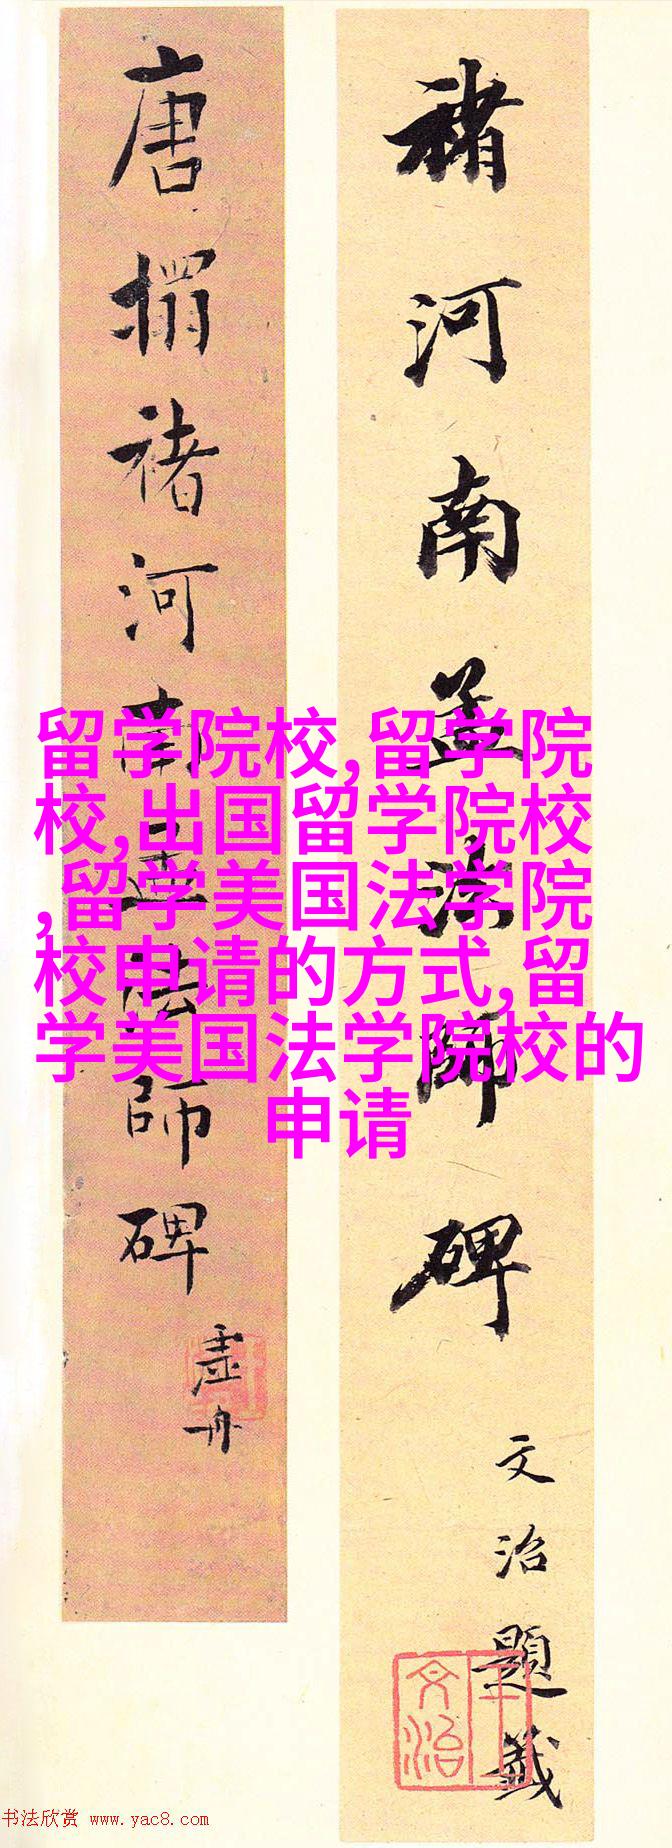 褚河南孟法師碑
文治題籤
王文治
唐搨褚河南孟法師碑
虚舟
留学院校,留学院
校,出国留学院校
,留学美国法学院
校申请的方式,留
学美国法学院校的
申请
书法欣赏 www.yac8.com